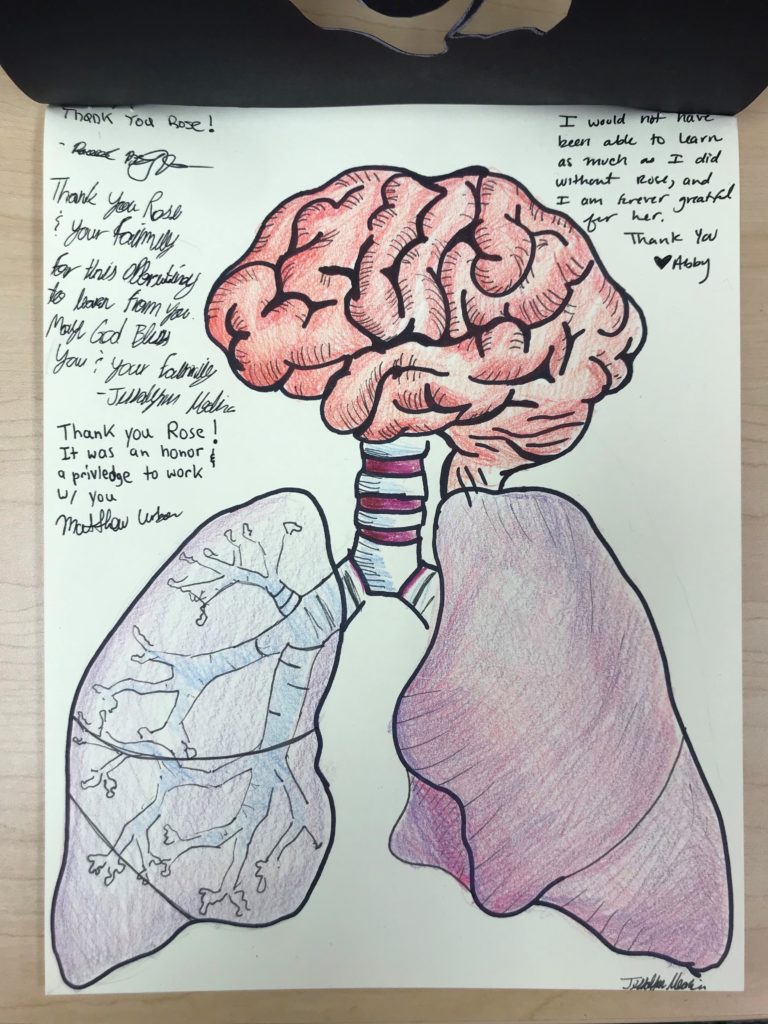 Thank You Rose!
Thank You Rose
& Your Faimily
for this
to learn from you.
May God Bless
You & Your Faimily
- Medina
Thank you Rose!
It was an honor &
a privledge to work
w/ you
Matthew
I would not have
been able to learn
as much as I did
without Rose, and
I am forever greatful
for her.
Thank You
♥Abby